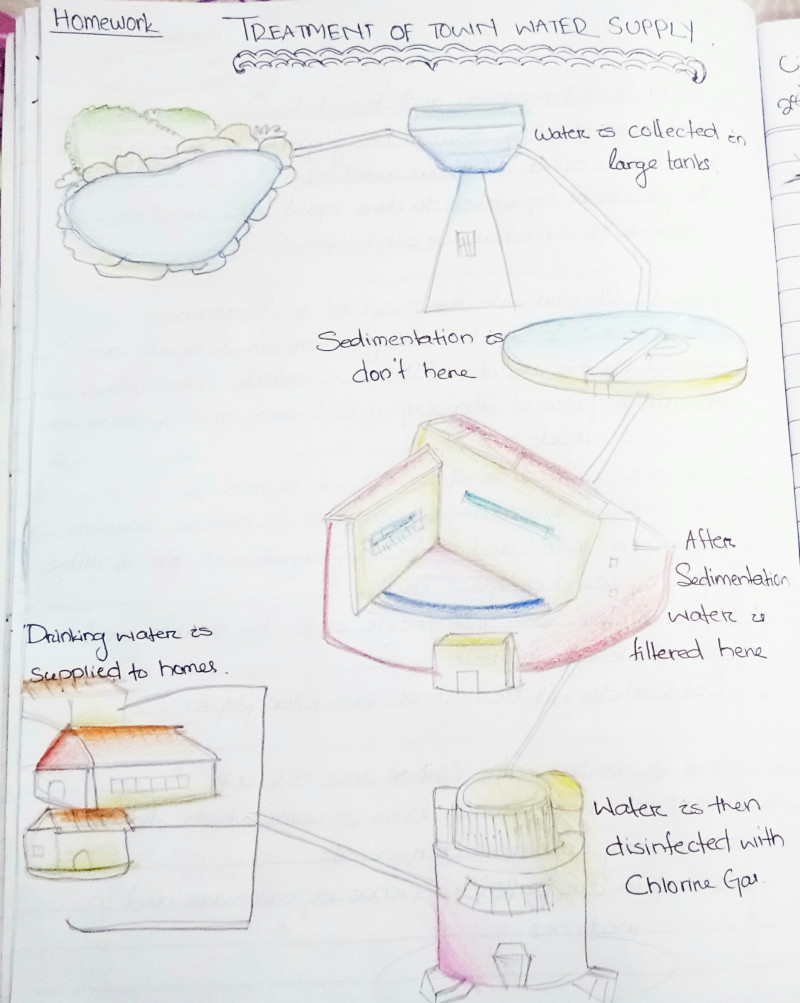 Homework
TREATMENT OF TOWN WATER SUPPLY
Water is collected in
large tanks.
Sedimentation is
don't here
After
Sedimentation
water is
filtered here
Drinking water is
supplied to homes.
Water is then
disinfected with
Chlorine Gas.